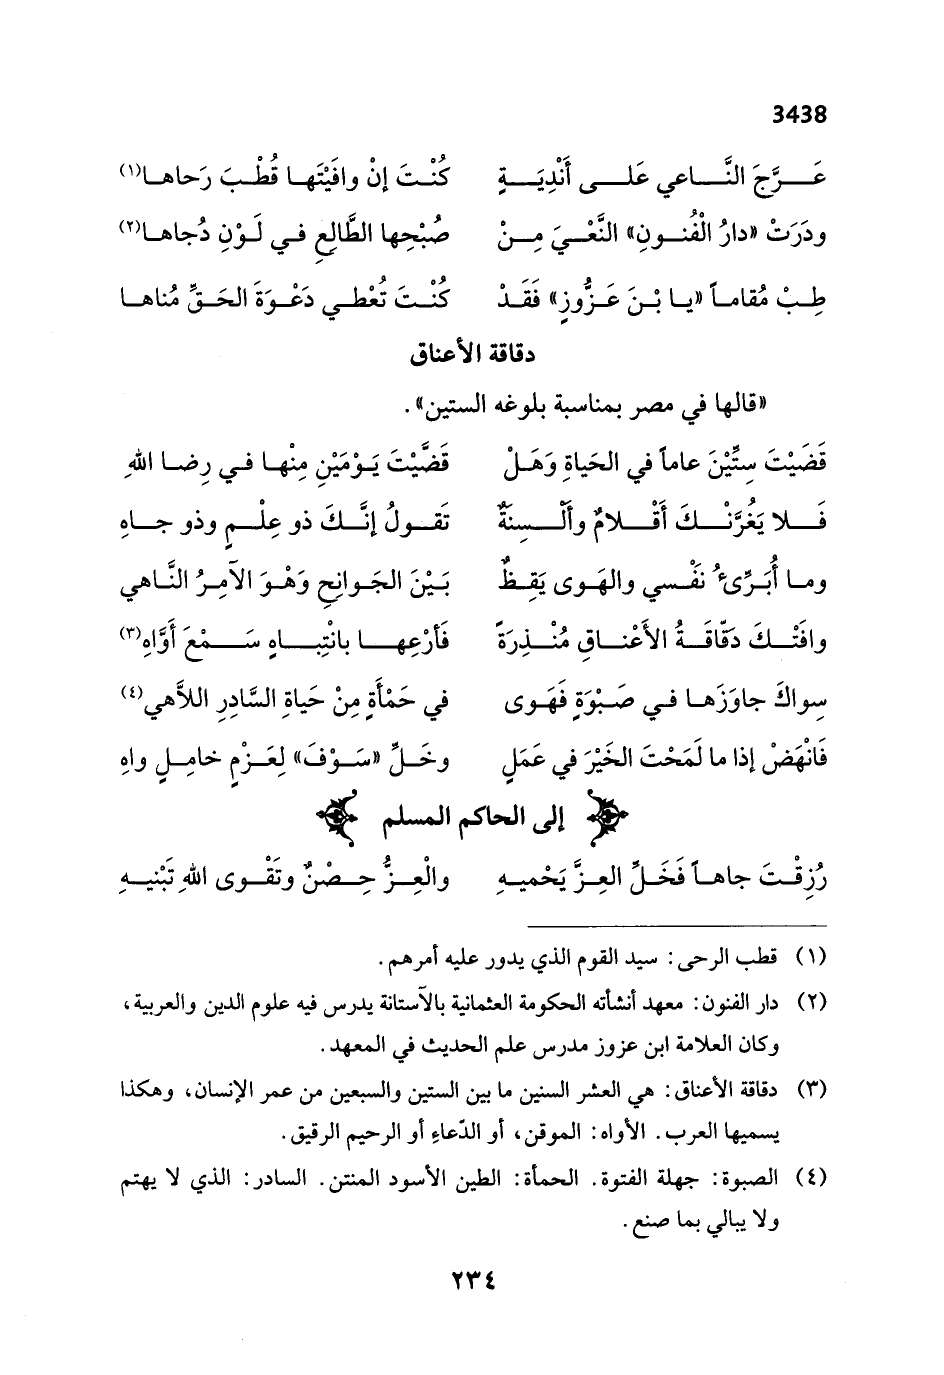 3438
عَـــرَّجَ النَّـــاعي عَلـــى أَنْدِيَـــةٍ كُنْـتَ إنْ وافَيْتَهـا قُطْـبَ رَحاهـا(١)
ودَرَتْ «دارُ الْفُنـونِ» النَّعْـيَ مِـنْ صُبْحِها الطَّالِعِ فـي لَـوْنِ دُجاهـا(٢)
طِـبْ مُقامـاً «يـا بْـنَ عَـزُّوزٍ» فَقَـدْ كُنْـتَ تُعْطـي دَعْـوَةَ الحَـقِّ مُناهـا
دقاقة الأعناق
«قالها في مصر بمناسبة بلوغه الستين».
قَضَيْتَ سِتِّيْنَ عاماً في الحَياةِ وَهَـلْ قَضَّيْتَ يَـوْمَيْنِ مِنْهـا فـي رِضـا اللهِ
فَـــلا يَغُرَّنْـــكَ أَقْـــلامٌ وأَلْـــسِنَةٌ تَقـــولُ إنَّـــكَ ذو عِلْـــمٍ وذو جـــاهِ
ومـا أُبَـرِّىءُ نَفْـسي والهَـوى يَقِـظٌ بَـيْنَ الجَـوانِحِ وَهْـوَ الآمِـرُ النَّـاهي
وافَتْــكَ دَقَّاقَــةُ الأَعْنــاقِ مُنْــذِرَةً فَأَرْعِهــا بانْتِبــاهٍ سَــمْعَ أَوَّاهِ(٣)
سِواكَ جاوَزَهـا فـي صَـبْوَةٍ فَهَـوى في حَمْأَةٍ مِنْ حَياةِ السَّادِرِ اللاَّهي(٤)
فَانْهَضْ إذا ما لَمَحْتَ الخَيْرَ في عَمَلٍ وخَـلِّ «سَـوْفَ» لِعَـزْمٍ خامِـلٍ واهِ
إلى الحاكم المسلم
رُزِقْـتَ جاهـاً فَخَـلِّ العِـزَّ يَحْميـهِ والْعِـزُّ حِـصْنٌ وتَقْـوى اللهِ تَبْنيـهِ
(١) قطب الرحى: سيد القوم الذي يدور عليه أمرهم.
(٢) دار الفنون: معهد أنشأته الحكومة العثمانية بالآستانة يدرس فيه علوم الدين والعربية،
وكان العلامة ابن عزوز مدرس علم الحديث في المعهد.
(٣) دقاقة الأعناق: هي العشر السنين ما بين الستين والسبعين من عمر الإنسان، وهكذا
يسميها العرب. الأواه: الموقن، أو الدّعاء أو الرحيم الرقيق.
(٤) الصبوة: جهلة الفتوة. الحمأة: الطين الأسود المنتن. السادر: الذي لا يهتم
ولا يبالي بما صنع.
٢٣٤